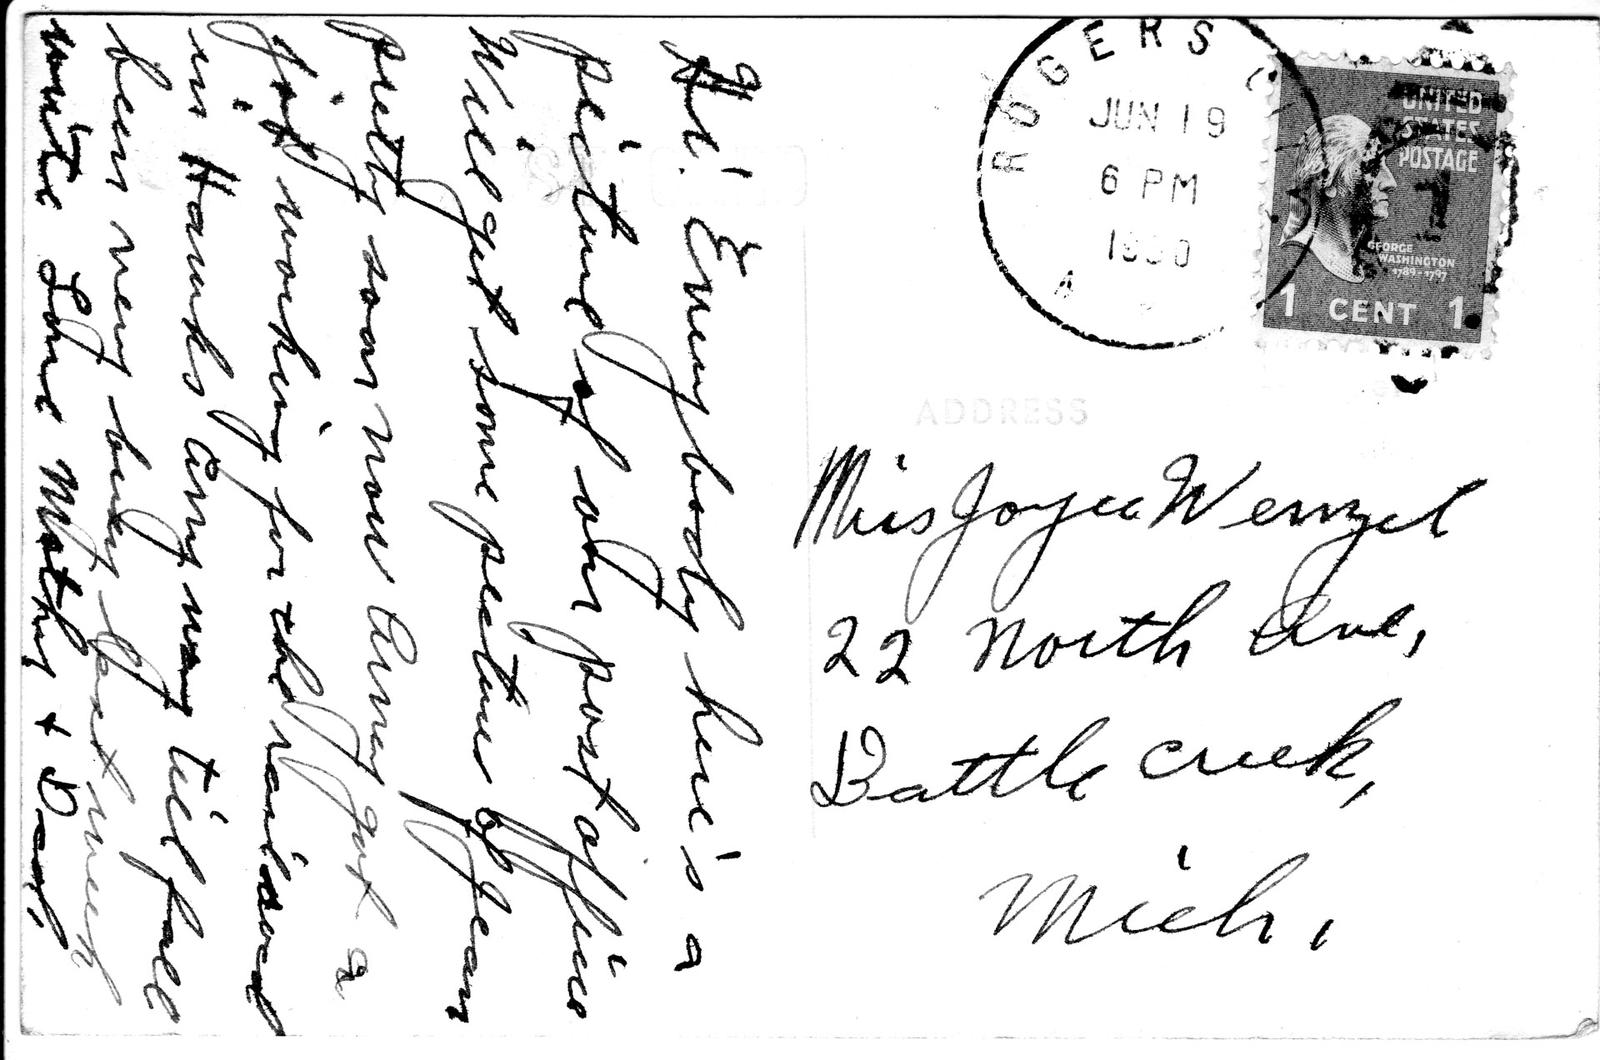 Hi! Every body here's a
picture of our post office
Will get some pictures of Jean
pretty soon now Army got a
job working for the railroad
in Hawks Army way till fall
been very busy get much
write Love Mother + Dad.
ROGERS CI
JUN 19
6 PM
1950
A
UNITED
STATES
POSTAGE
GEORGE
WASHINGTON
1789-1797
1 CENT 1
ADDRESS
Miss Joyce Wenzel
22 North Ave,
Battle Creek,
Mich,